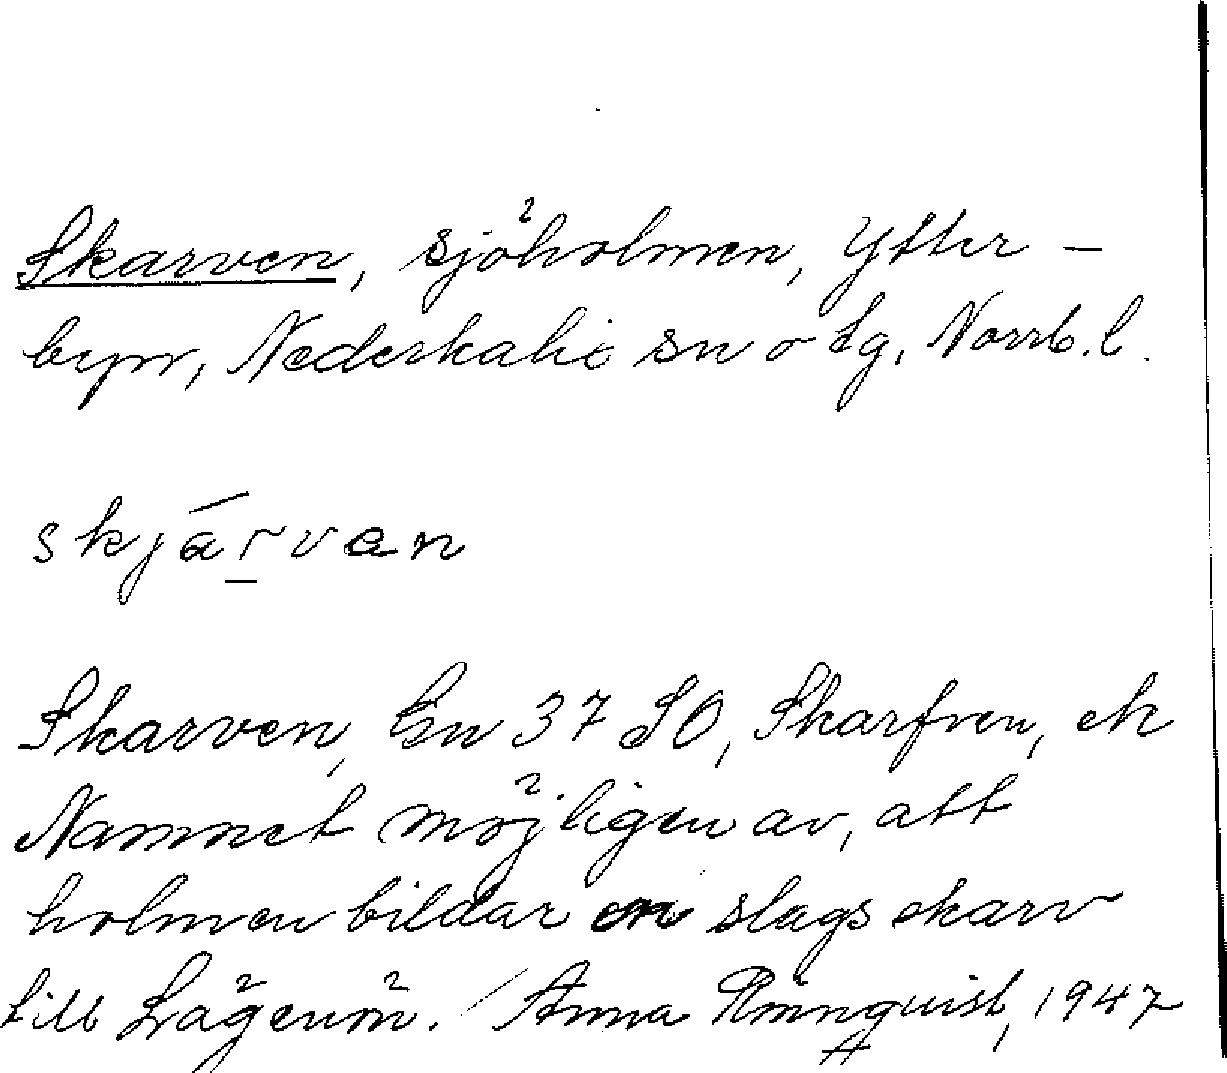 Skarven, sjöholmen, Ytter-
byn, Nederkalix sn o tg, Norrb. l.
skjárvan
Skarven, Gn 37 SO, Skarfven, ek
Namnet möjligen av, att
holmen bildar en slags skarv
till Lågenön. / Anna Rönnquist, 1947